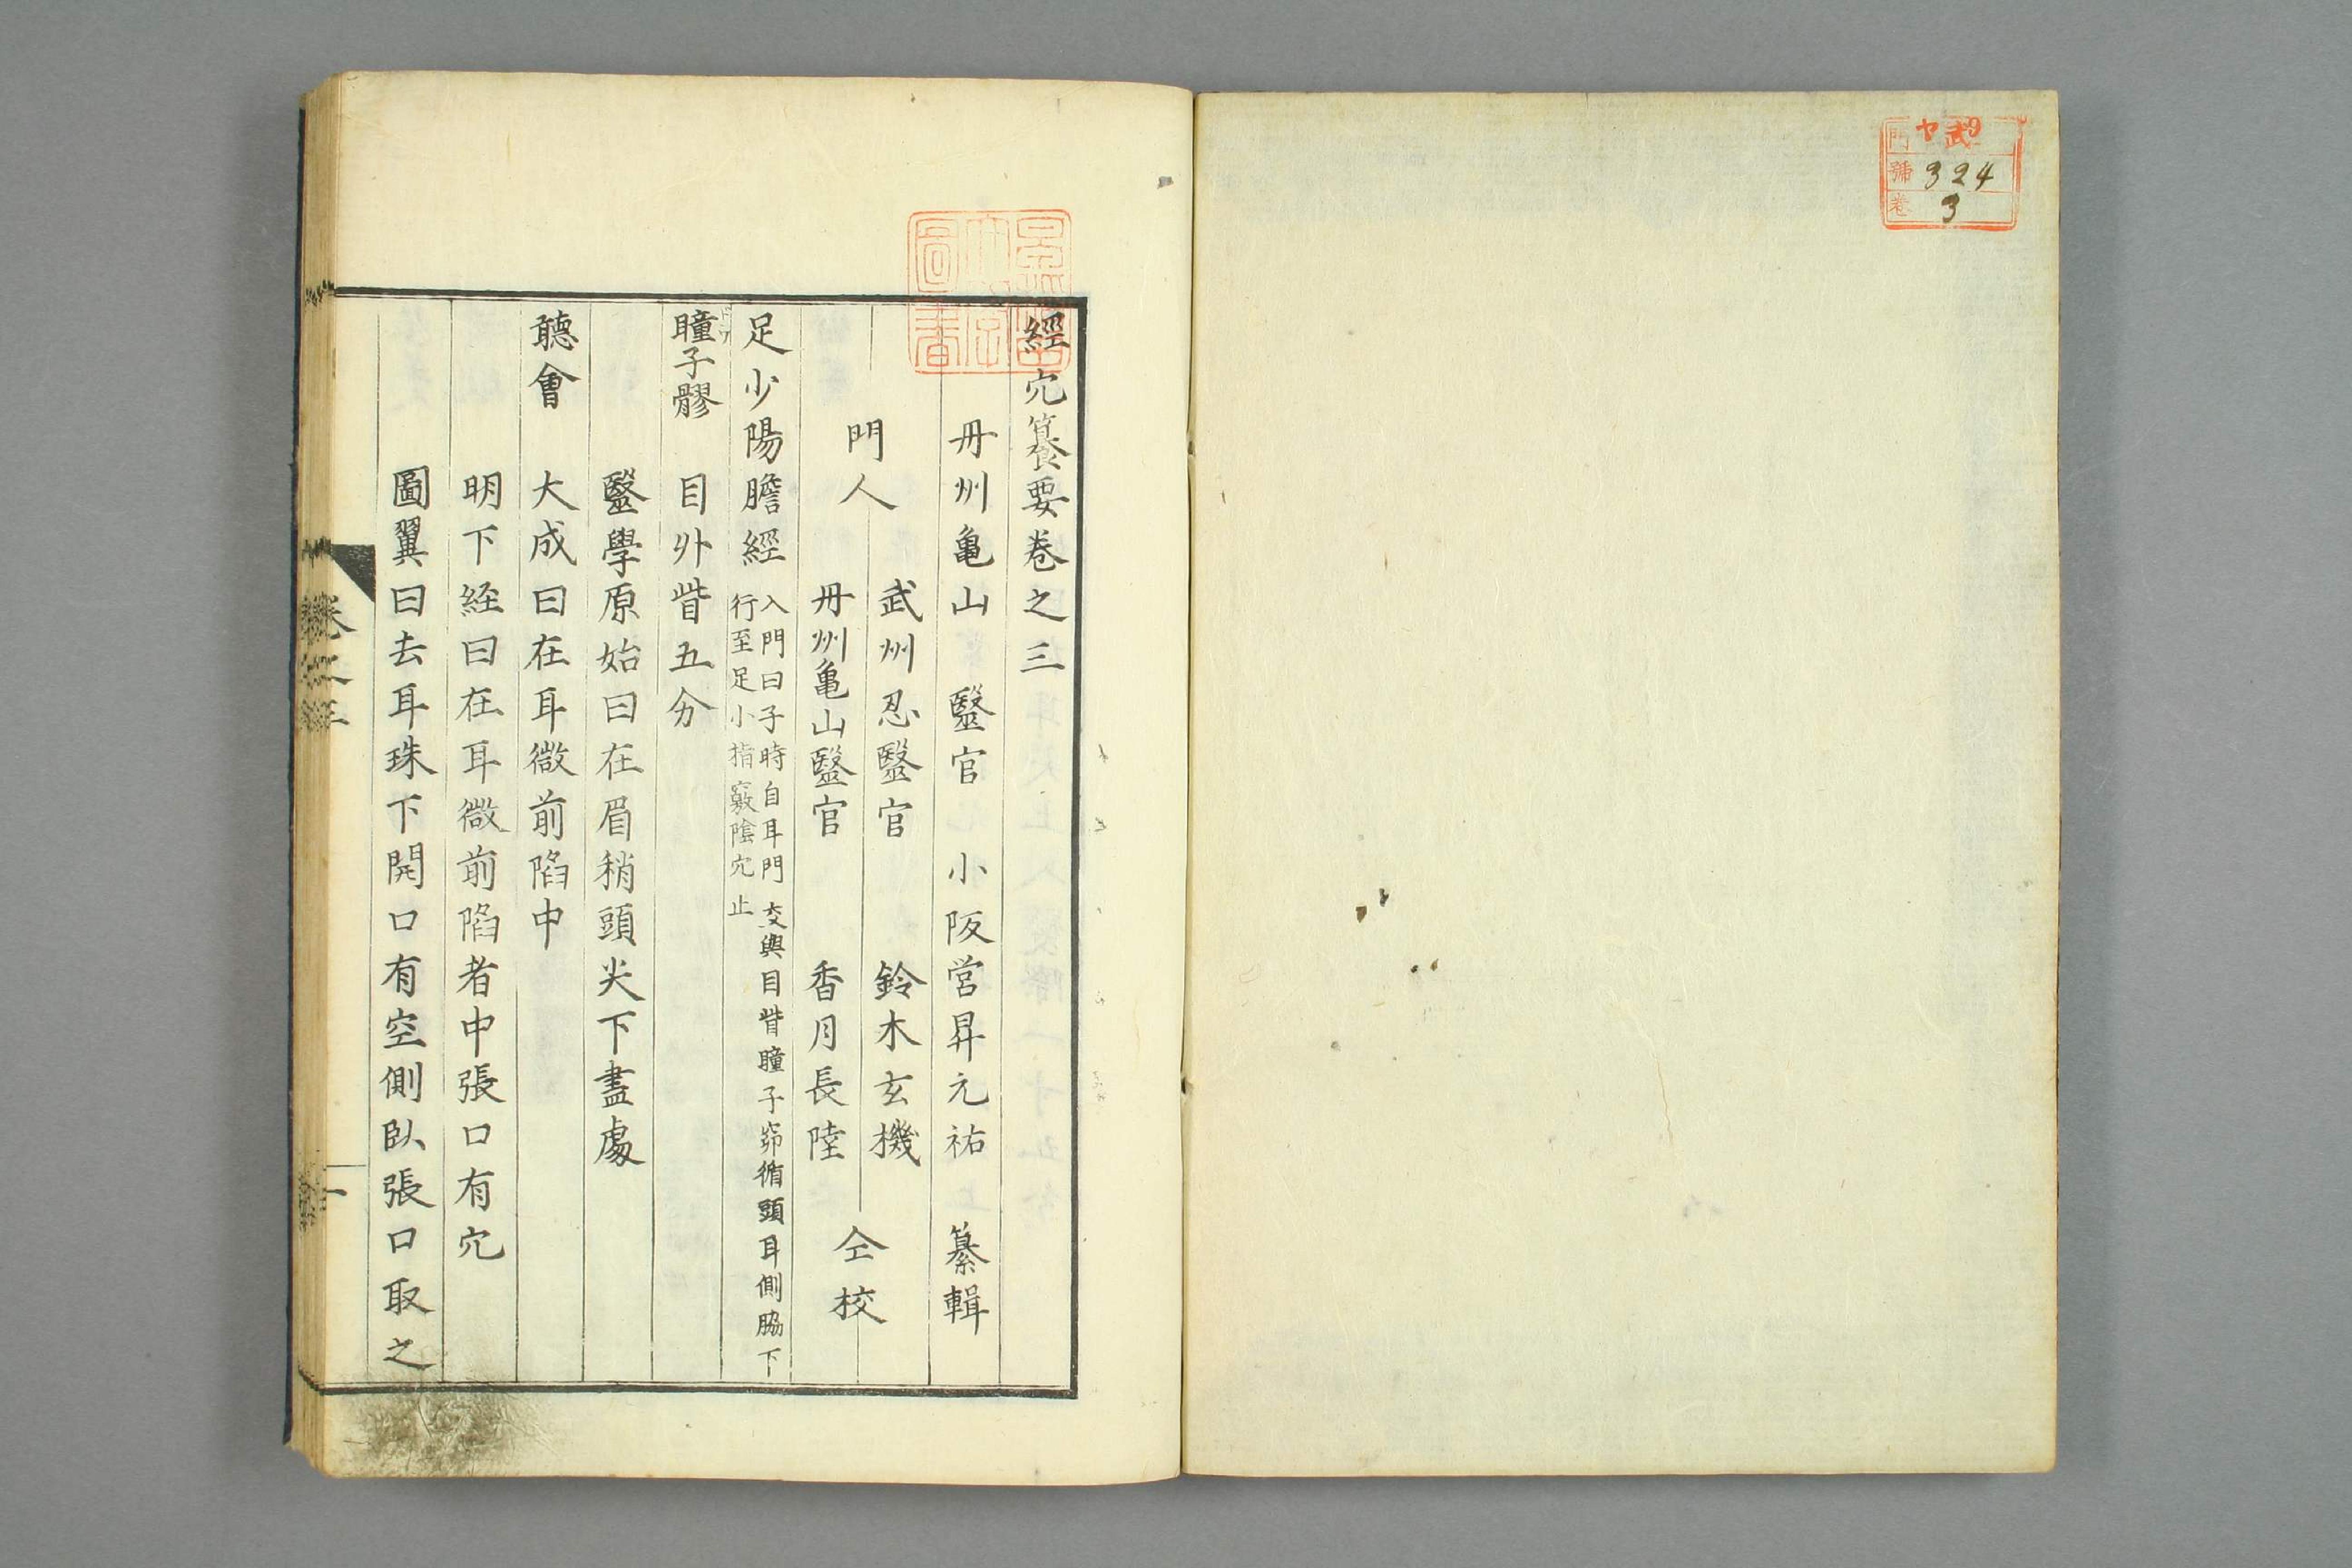 ヤ武9
門
號 324
卷 3
經穴纂要卷之三
丹州亀山 毉官 小阪営昇元祐 纂輯
門人 武州忍毉官 鈴木玄機
丹州亀山毉官 香月長陸 仝校
足少陽膽經 入門曰子時自耳門交與目眥瞳子窌循頭耳側脇下
行至足小指竅陰穴止
瞳子髎 目外眥五分
毉學原始曰在眉稍頭尖下盡處
聽會 大成曰在耳微前陷中
明下経曰在耳微前陷者中張口有穴
圖翼曰去耳珠下開口有空側臥張口取之
卷之三 一